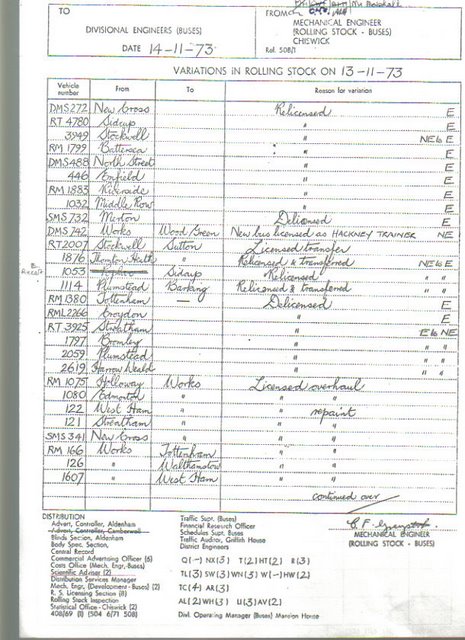 TO
DIVISIONAL ENGINEERS (BUSES)
DATE 14-11-73
FROM
MECHANICAL ENGINEER
(ROLLING STOCK - BUSES)
CHISWICK
Ref. 508/1
VARIATIONS IN ROLLING STOCK ON 13-11-73
Vehicle number From To Reason for variation
DMS272 New Cross Relicensed E
RT 4780 Sidcup " E
3949 Stockwell " NE to E
RM 1799 Battersea " E
DMS488 North Street " E
446 Enfield " E
RM 1883 Riverside " E
1032 Middle Row " E
SMS 732 Merton Delicensed E
DMS 742 Works Wood Green New bus licensed as HACKNEY TRAINER NE
RT2007 Stockwell Sutton Licensed transfer
1876 Thornton Heath " Relicensed & transferred NE to E
1053 Sidcup Relicensed " "
1114 Plumstead Barking Relicensed & transferred " "
RM1380 Tottenham — Delicensed E
RML2266 Croydon " E
RT 3925 Streatham " E to NE
1797 Bromley " " "
2059 Plumstead " " "
2619 Harrow Weald " " "
RM 1075 Holloway Works Licensed overhaul
1080 Edmonton " " "
122 West Ham " " repaint
121 Streatham " " "
SMS 341 New Cross " " "
RM 166 Works Tottenham " "
126 " Walthamstow " "
1607 " West Ham " "
continued over
MECHANICAL ENGINEER
(ROLLING STOCK - BUSES)
DISTRIBUTION
Advert. Controller, Aldenham
Advert. Controller, Camberwell
Blinds Section, Aldenham
Body Spec. Section,
Central Record
Commercial Advertising Officer (6)
Costs Office (Mech. Engr, Buses)
Scientific Adviser (2)
Distribution Services Manager
Mech. Engr, (Development - Buses) (2)
R. S. Licensing Section (8)
Rolling Stock Inspection
Statistical Office - Chiswick (2)
408/69 (1) 504 6/71 508)
Traffic Supt. (Buses)
Financial Research Officer
Schedules Supt. Buses
Traffic Auditor, Griffith House
District Engineers
Q(-) NX(3) T(2) HT(2) R(3)
TL(3) SW(3) WN(3) W(-) HW(2)
TC(4) AR(3)
AL(2) WH(3) U(3) AV(2)
Divl. Operating Manager (Buses) Mansion House